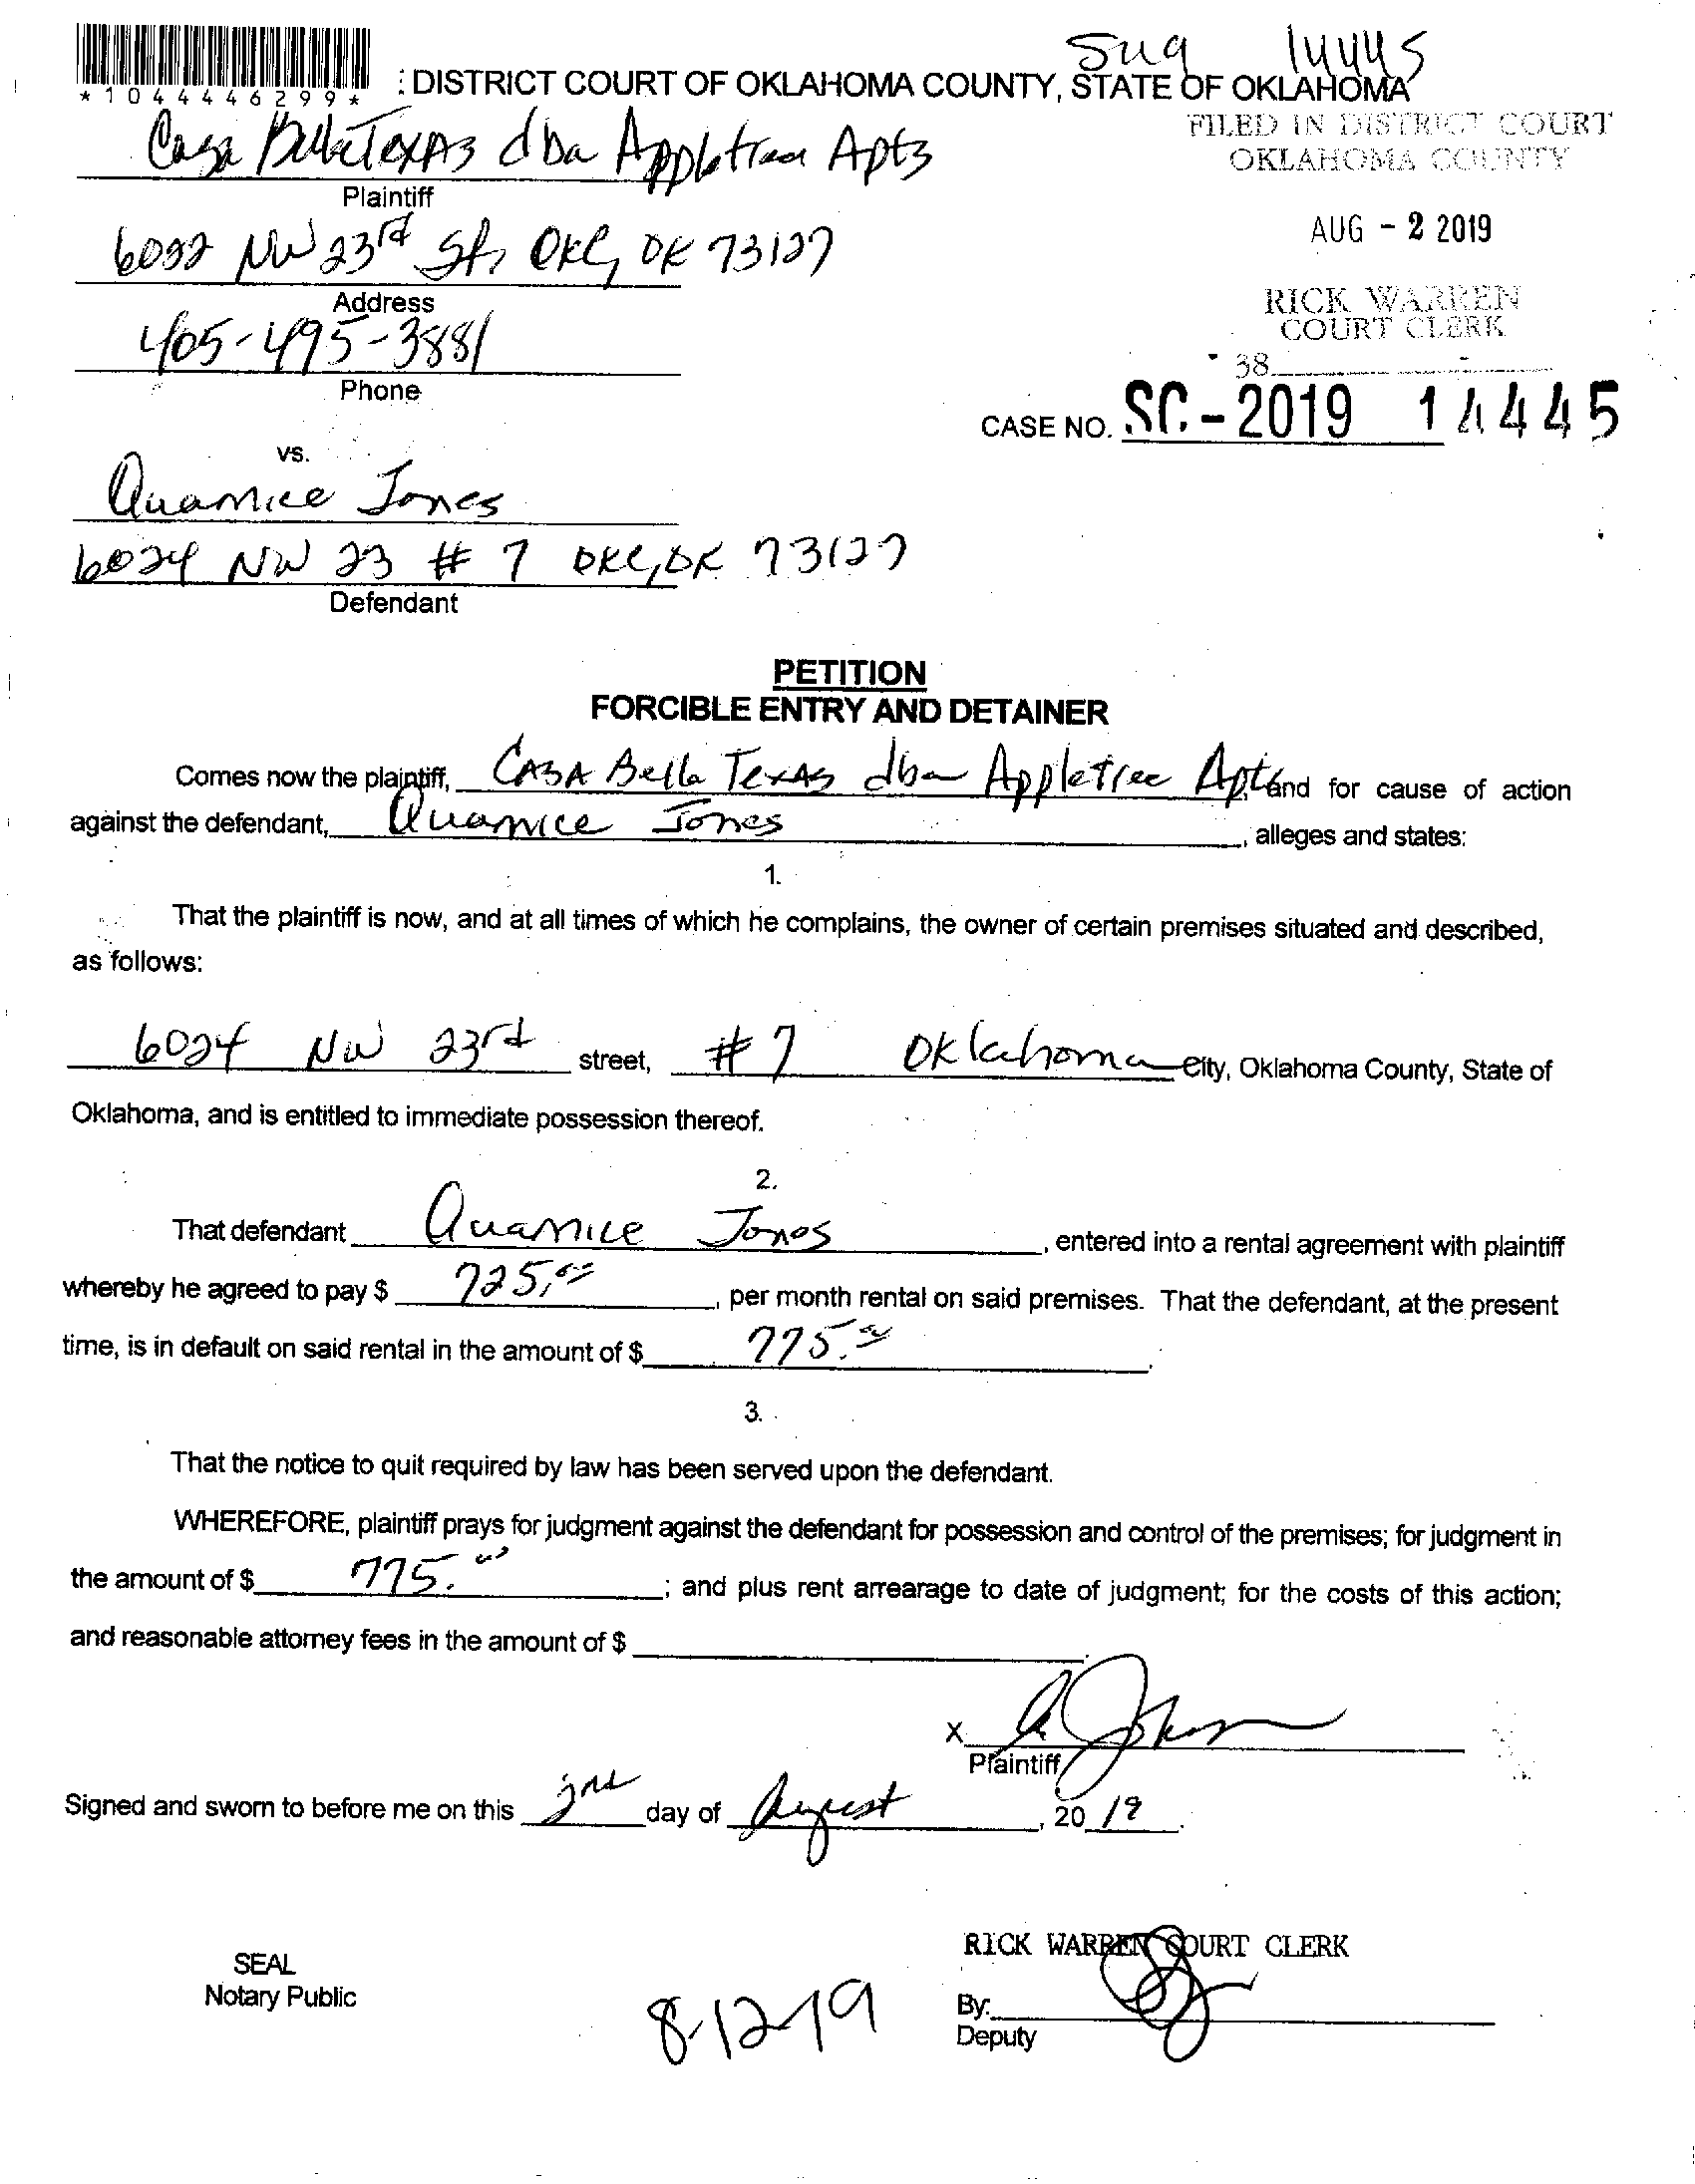 Sug 14445
*1044446299* : DISTRICT COURT OF OKLAHOMA COUNTY, STATE OF OKLAHOMA
FILED IN DISTRICT COURT
OKLAHOMA COUNTY
Casa Bella Texas dba Appletree Apts
Plaintiff
AUG - 2 2019
6022 NW 23rd St, OKC, OK 73127
Address
RICK WARREN
COURT CLERK
405-495-3881
Phone
38
CASE NO. SC-2019 14445
vs.
Quamice Jones
6024 NW 23 # 7 OKC, OK 73127
Defendant
PETITION
FORCIBLE ENTRY AND DETAINER
Comes now the plaintiff, Casa Bella Texas dba Appletree Apt and for cause of action
against the defendant, Quamice Jones, alleges and states:
1.
That the plaintiff is now, and at all times of which he complains, the owner of certain premises situated and described,
as follows:
6024 NW 23rd street, #7 Oklahoma City, Oklahoma County, State of
Oklahoma, and is entitled to immediate possession thereof.
2.
That defendant Quamice Jones, entered into a rental agreement with plaintiff
whereby he agreed to pay $ 725.00, per month rental on said premises. That the defendant, at the present
time, is in default on said rental in the amount of $ 775.00.
3.
That the notice to quit required by law has been served upon the defendant.
WHEREFORE, plaintiff prays for judgment against the defendant for possession and control of the premises; for judgment in
the amount of $ 775.00; and plus rent arrearage to date of judgment; for the costs of this action;
and reasonable attorney fees in the amount of $
X
Plaintiff
Signed and sworn to before me on this 2nd day of August, 2019.
RICK WARREN COURT CLERK
SEAL
Notary Public
8-12-19
By:
Deputy